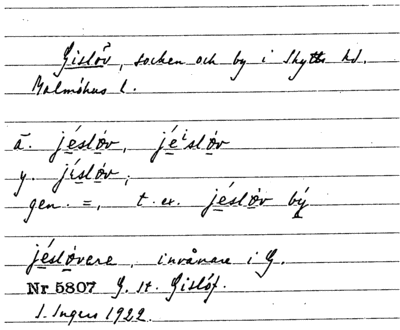 Gislöv, socken och by i Skytts hd.
Malmöhus l.
ä. jésløv, jéⁱsløv
y. jísløv;
gen. =, t. ex. jésløv bý
jésløvere, invånare i G.
Nr 5807 G. st. Gislöf.
I. Ingers 1922.